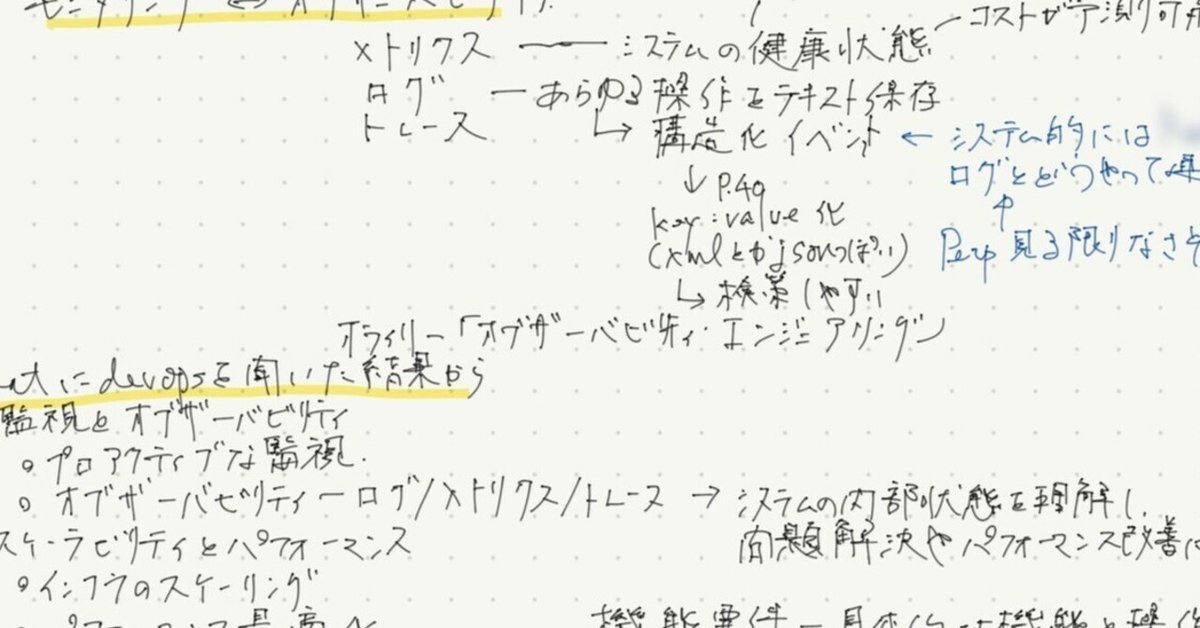 モニタリング ⇔ オブザーバビリティ
コストが予測可能
メトリクス ― システムの健康状態
ログ ― あらゆる操作をテキスト保存
トレース
↳ 構造化イベント ← システム的には
ログとどうやって
↓ P.49
key:value 化
(xmlとかjsonっぽい)
↑
見る限りなさそ
↳ 検索しやすい
オライリー「オブザーバビリティ・エンジニアリング」
にdevopsを聞いた結果から
監視とオブザーバビリティ
○ プロアクティブな監視.
○ オブザーバビリティーログ/メトリクス/トレース → システムの内部状態を理解し、
問題解決やパフォーマンス改善に
スケーラビリティとパフォーマンス
○インフラのスケーリング
機能要件 ―